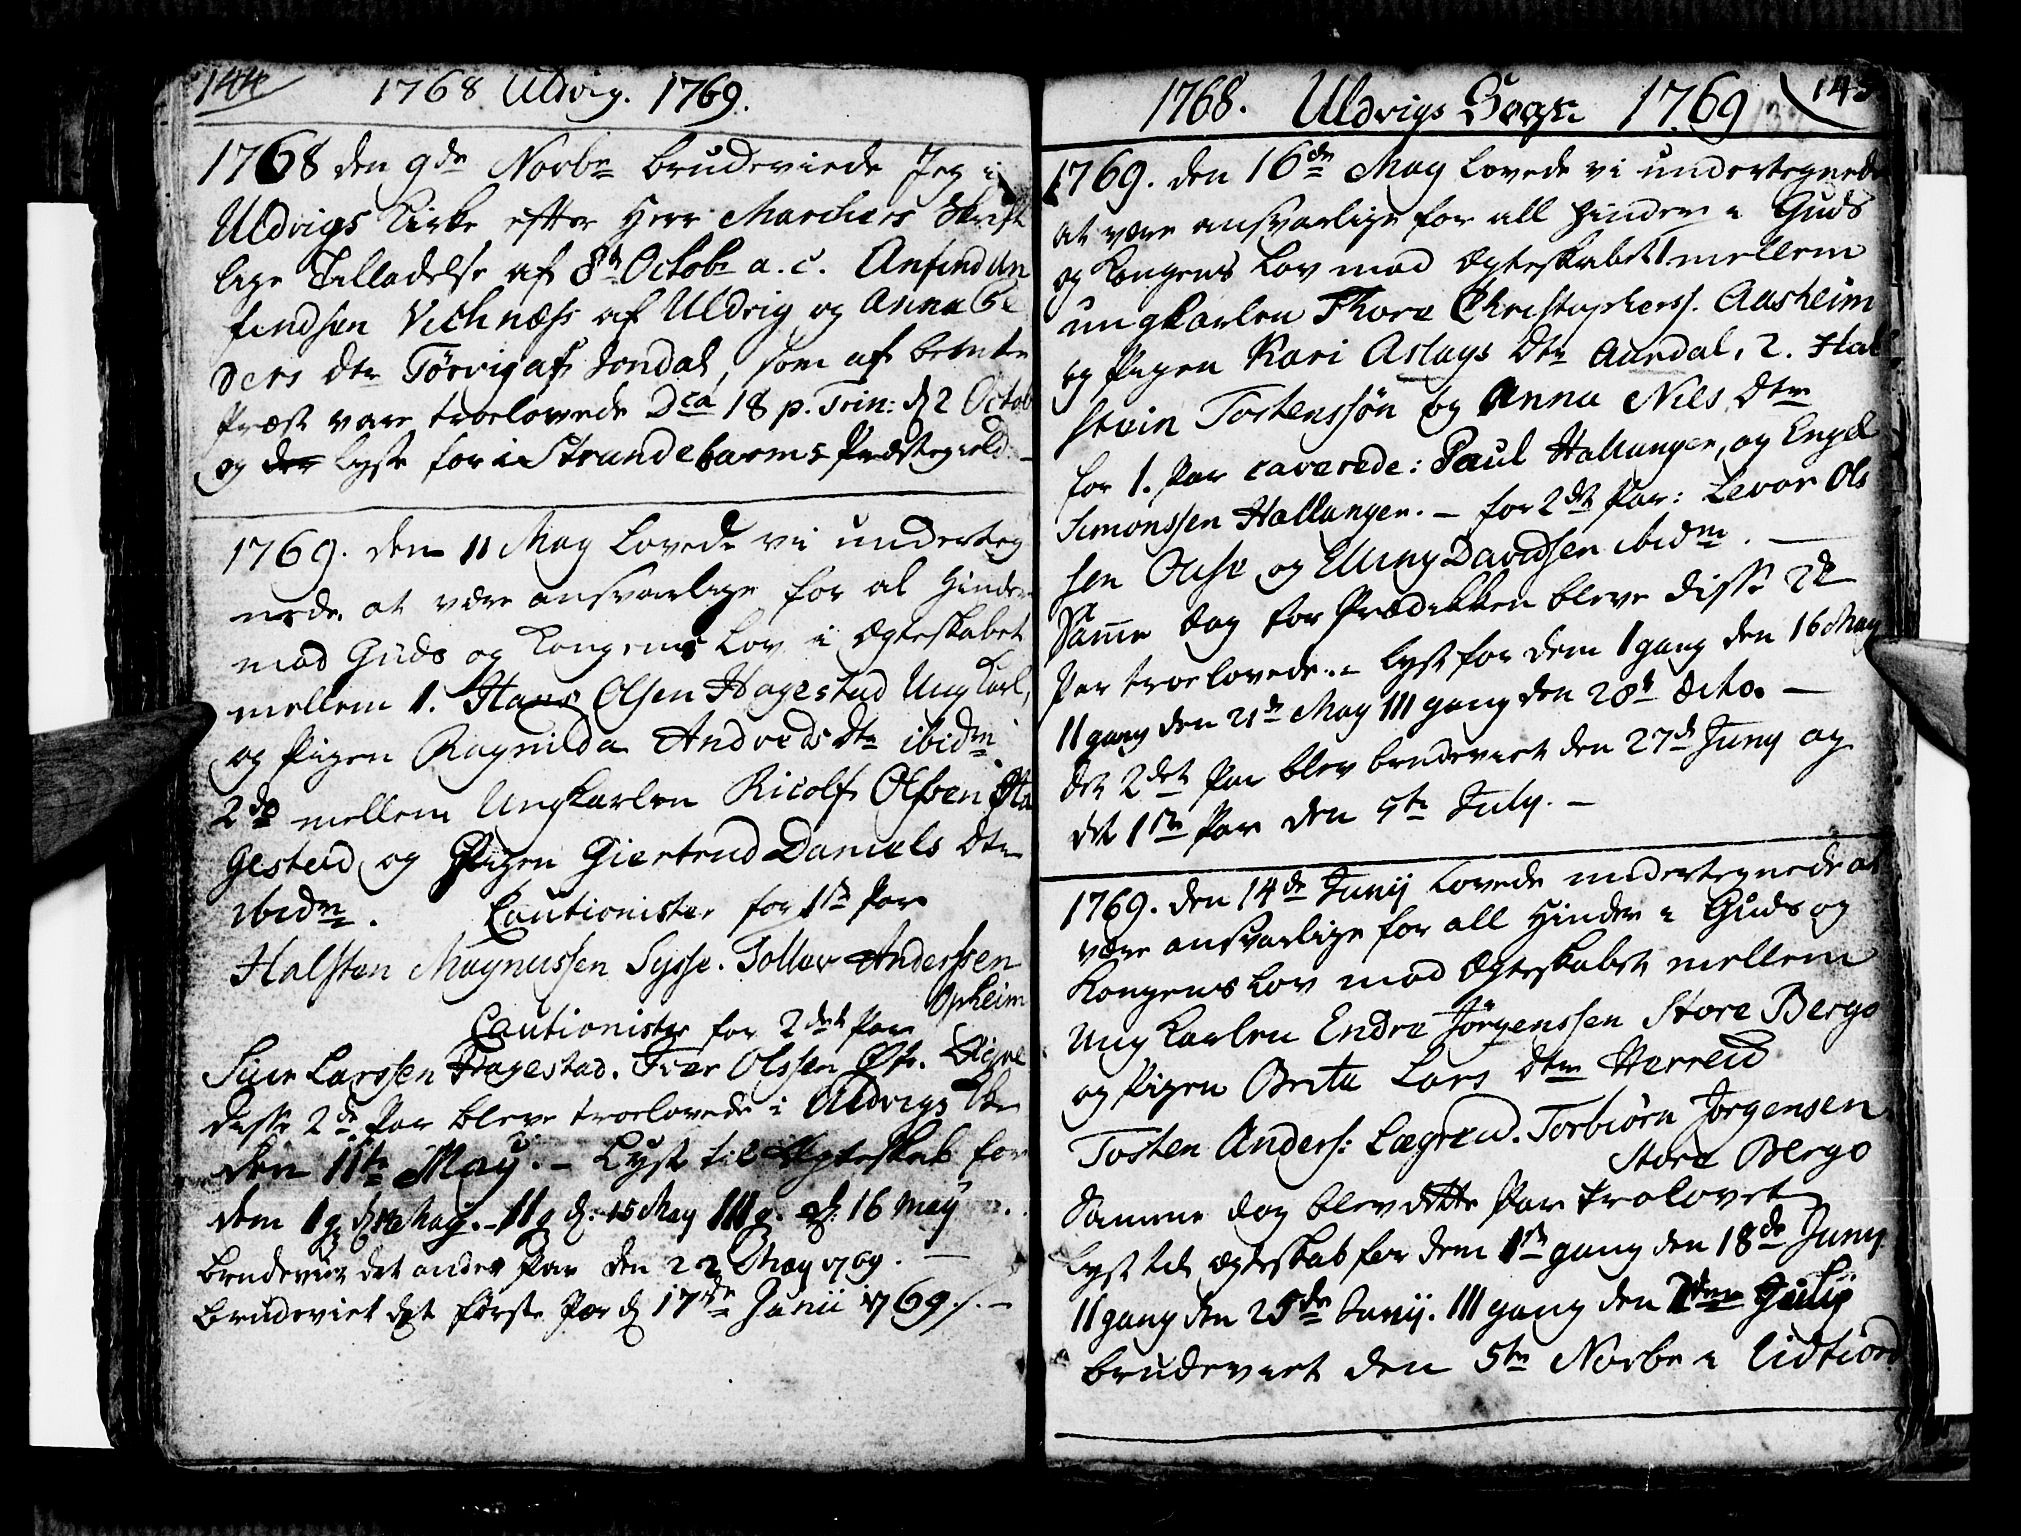 144
1768 Uldvig. 1769.
1768 den 9de Novbr brudeviede Jeg i
Uldvigs Kirke efter Herr Marchers Skrift
lige Tilladelse af 8de Octobr a. c. Anfind An
findsen Vichnæss af Uldvig og Anna Pe
ders dtr Törvig af Jondal, som af bemte
Præst vare troelovede Dca 18 p. Trin: d 2 Octob
og lyst for i Strandebarms Præstegield. –
1769. den 11 May lovede vi underteg
nede at være ansvarlige for al Hinder
mod Guds og Kongens Lov i Ægteskabet
mellem 1. Hans Olsen Hagestad Ung Karl,
og Pigen Ragnilda Andveds dtr ibidm.
2do mellem Ungkarlen Ricolf Olsen Ha
gestad og Pigen Giertrud Daniels dtr
ibidm. Cautionister for 1ste Par
Halsten Magnussen Sysse. Tollev Anderssen
Opheim
Cautionister for 2det Par
Siur Larssen Hagestad. Iver Olssen
disse 2de Par bleve troelovede i Uldvigs
den 11te May. – Lyst til Ægteskab for
dem I g d May. – II g d: 15 May III g. d: 16 May
brudeviet det andet Par den 22 May 1769. –
brudeviet det første Par d 17de Junii 1769 ./. –
1768. Uldvigs Sogn 1769
145
1769. den 16de May lovede vi undertegnede
at være ansvarlige for all Hinder i Guds
og Kongens Lov mod Ægteskabet mellem
ungkarlen Thore Christophers. Aasheim
og Pigen Kari Aslags Dtr Aurdal, 2. Hal
stein Tostenssön og Anna Niels Dtr
for 1. Par caverede: Paul Hallanger, og Engel
Simonssen Hallanger. – for 2det Par: Levor Ols
sen Ouse og Elling Davidsen ibidm. –
Samme dag for Prædikken bleve disse 2de
Par troelovede. – lyst for dem I gang den 16 May
II gang den 21de May III gang den 28de dito. –
det 2det Par blev brudeviet den 27de Juny og
det 1ste Par den 5te July. –
1769. den 14de Junij lovede undertegnede at
være ansvarlige for all Hinder i Guds og
Kongens Lov mod Ægteskabet mellem
Ung Karlen Endre Jörgenssen Store Berge
og Pigen Brita Lars Dtr Herreid
Tosten Anders: Lægreid. Torbiörn Jørgensen
Store Berge
Samme dag blev dette Par trolovet
lyst til Ægteskab for dem 1ste gang den 18de Juny
II gang den 25de Junij. III gang den 2den Julij
brudeviet den 5te Novbr i Eidfiord